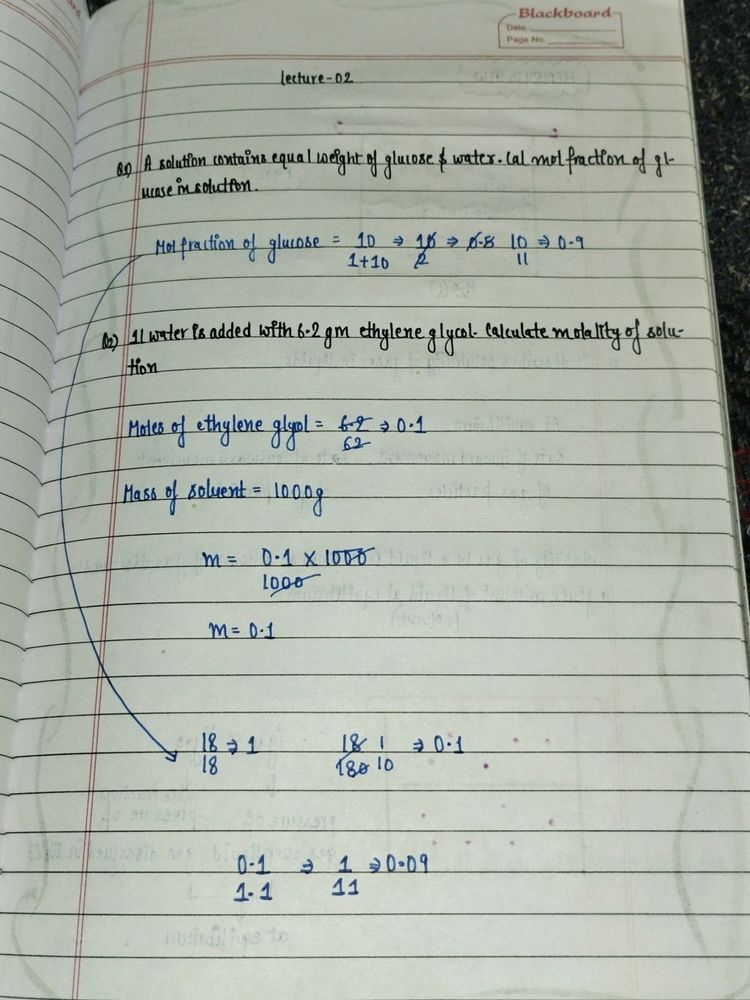 Blackboard
Date
Page No.
lecture-02
Q1) A solution contains equal weight of glucose & water. Cal mol fraction of gl-
ucose in solution.
Mol fraction of glucose = 10/1+10 ⇒ 10/2 ⇒ 0.8 10/11 ⇒ 0.9
Q2) 1l water is added with 6.2 gm ethylene glycol. Calculate molality of solu-
tion
Moles of ethylene glyol = 6.2/62 ⇒ 0.1
Mass of solvent = 1000g
m = 0.1 × 1000/1000
m = 0.1
18/18 ⇒ 1 18/180 1/10 ⇒ 0.1
0.1/1.1 ⇒ 1/11 ⇒ 0.09